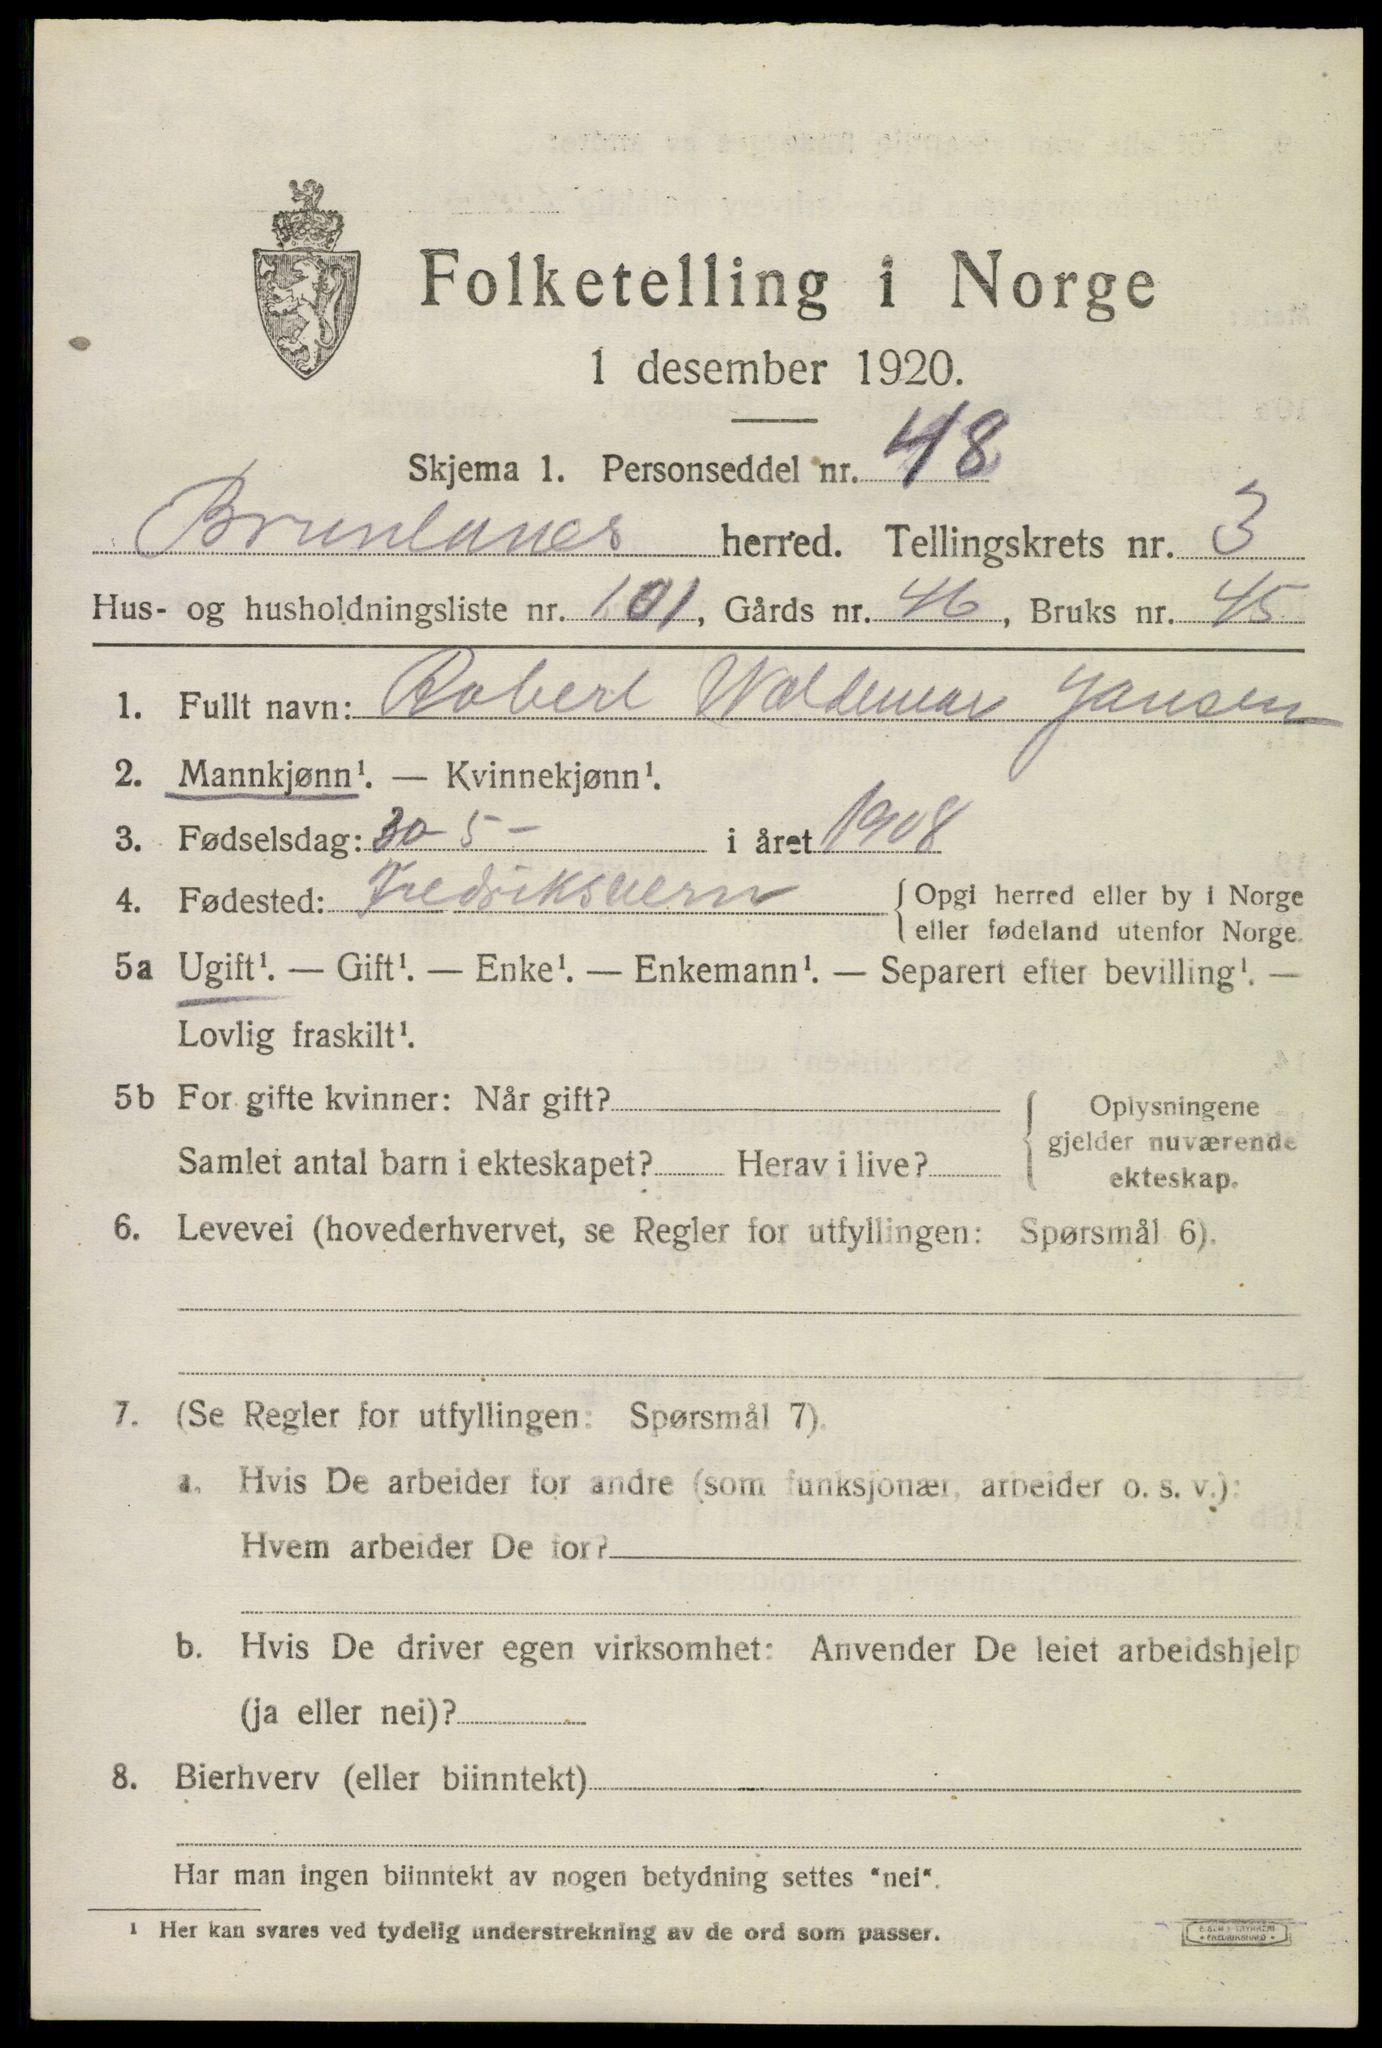 Folketelling i Norge
1 desember 1920.
Skjema 1. Personseddel nr. 48
Brunlanes herred. Tellingskrets nr. 3
Hus- og husholdningsliste nr. 101, Gårds nr. 46, Bruks nr. 45
1. Fullt navn: Robert Waldemar Jansen
2. Mannkjønn¹. — Kvinnekjønn¹.
3. Fødselsdag: 30-5- i året 1908
4. Fødested: Fredriksvern { Opgi herred eller by i Norge
eller fødeland utenfor Norge.
5a Ugift¹. — Gift¹. — Enke¹. — Enkemann¹. — Separert efter bevilling¹. —
Lovlig fraskilt¹.
5b For gifte kvinner: Når gift?
Samlet antal barn i ekteskapet? Herav i live?
{ Oplysningene
gjelder nuværende
ekteskap.
6. Levevei (hovederhvervet, se Regler for utfyllingen: Spørsmål 6).
7. (Se Regler for utfyllingen: Spørsmål 7).
a. Hvis De arbeider for andre (som funksjonær, arbeider o. s. v.):
Hvem arbeider De for?
b. Hvis De driver egen virksomhet: Anvender De leiet arbeidshjelp
(ja eller nei)?
8. Bierhverv (eller biinntekt)
Har man ingen biinntekt av nogen betydning settes "nei".
¹ Her kan svares ved tydelig understrekning av de ord som passer.